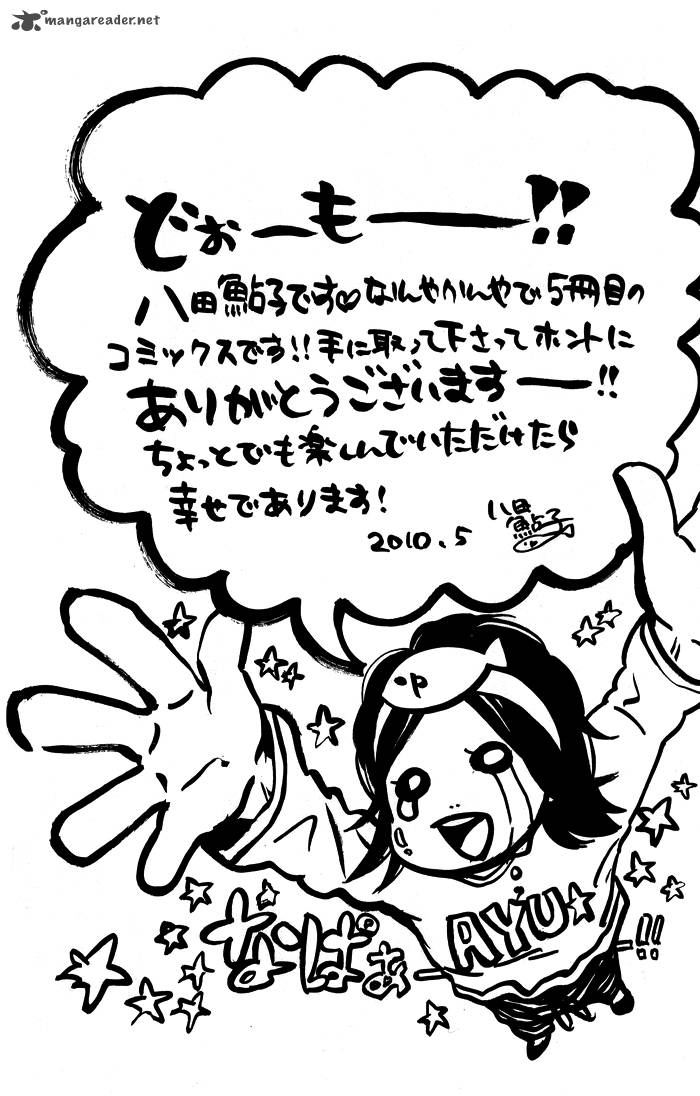 mangareader.net
どぉーもー!!
八田鮎子です♡なんやかんやで5冊目の
コミックスです!!手に取って下さってホントに
ありがとうございますー!!
ちょっとでも楽しんでいただけたら
幸せであります!
2010.5
八田鮎子
P
AYU☆
なりぱぁー!!